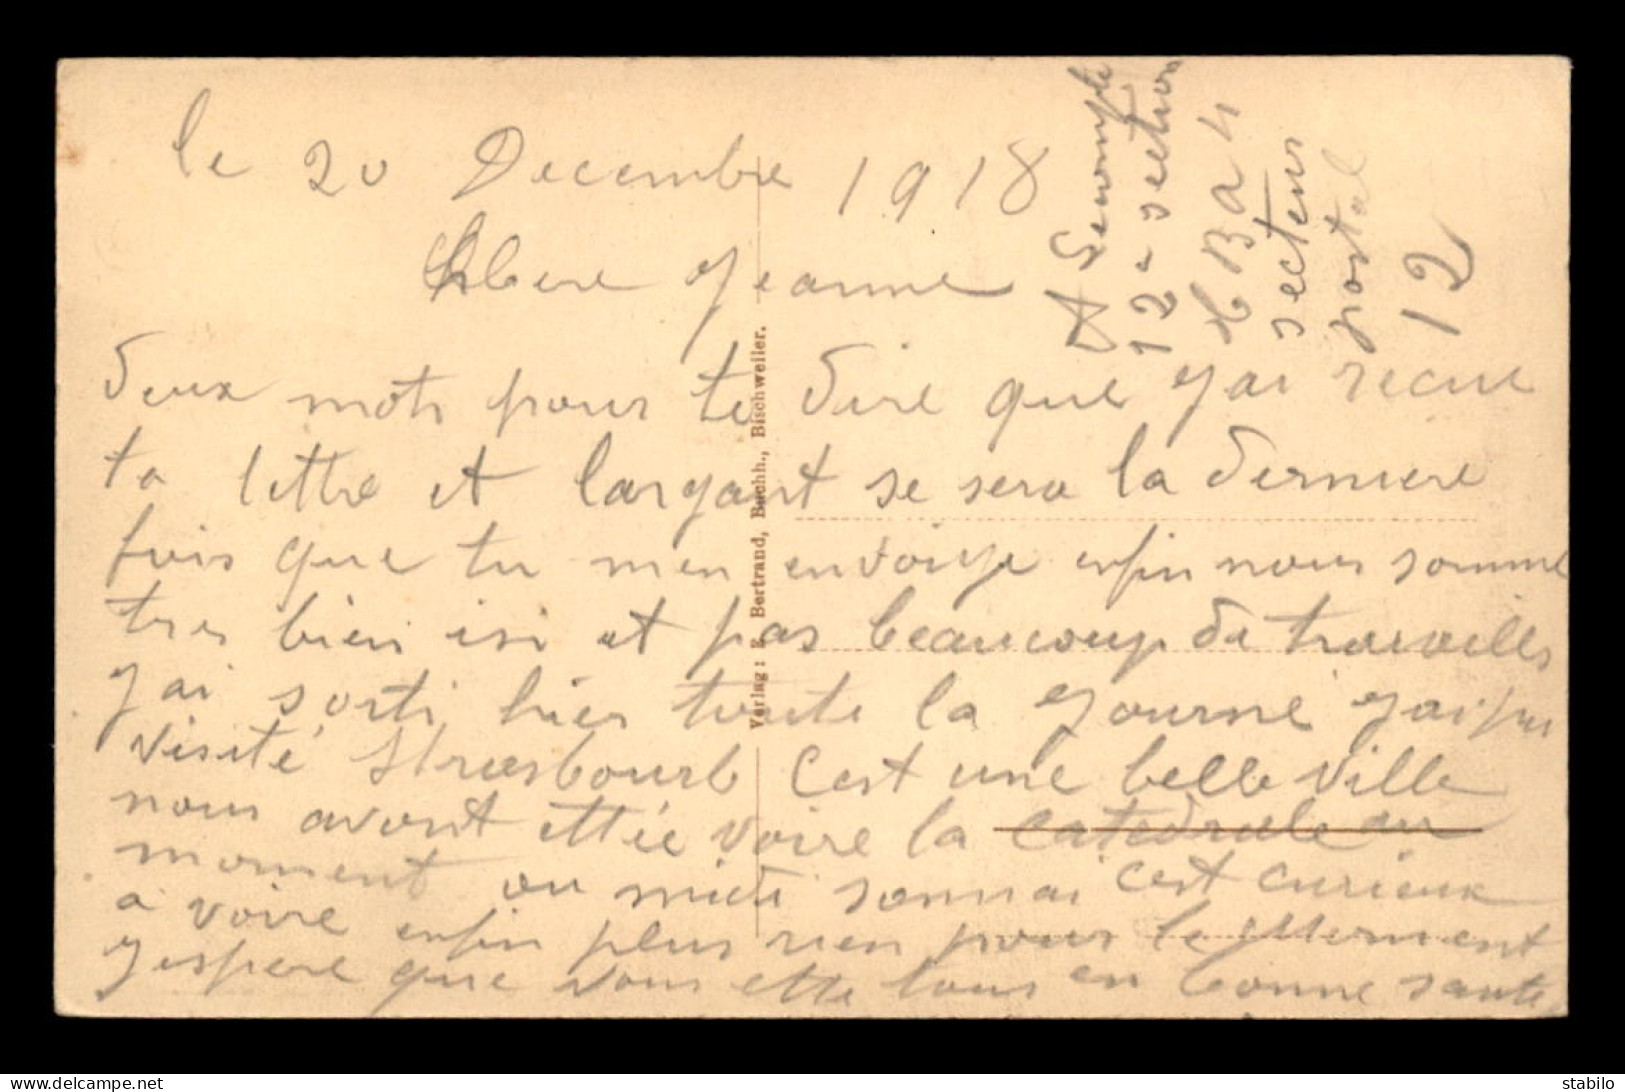 le 20 Decembre 1918
Chere Jeanne
deux mots pour te dire que j'ai recue
ta lettre et largant se sera la derniere
fois que tu men envoiye enfin nous somme
tres bien isi et pas beaucoup de travailles
j'ai sorti hier toute la journé j'ai pu
visité Strasbourb c'est une belle ville
nous avont ettée voire la catedrale au
moment ou midi sonnai c'est curieux
a voire enfin plus rien pour le moment
j'espere que vous ette tous en bonne sante
A
12e section
H B a 4
secteur
postal
12
Verlag: E. Bertrand, Buchh., Bischweiler.
stabilo
WWW.DELCAMPE.NET